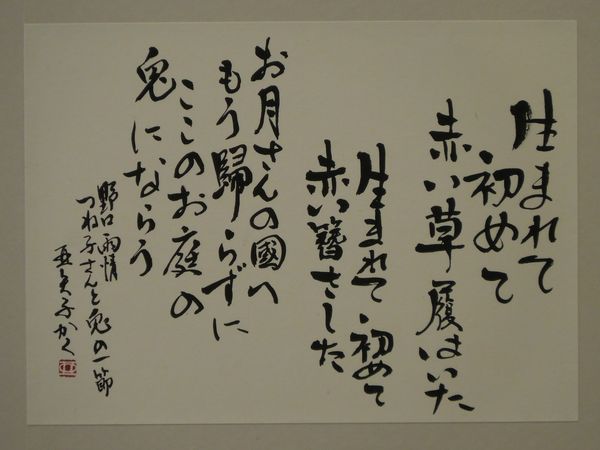 生まれて
初めて
赤い草履はいた
生まれて初めて
赤い簪さした
お月さんの國へ
もう歸らずに
ここのお庭の
兎にならう
野口雨情
つね子さんと兎の一節
かく